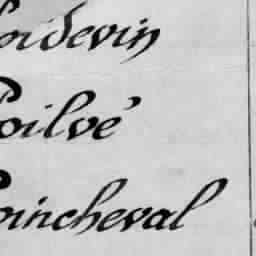 Poidevin
Poilvé
Poincheval